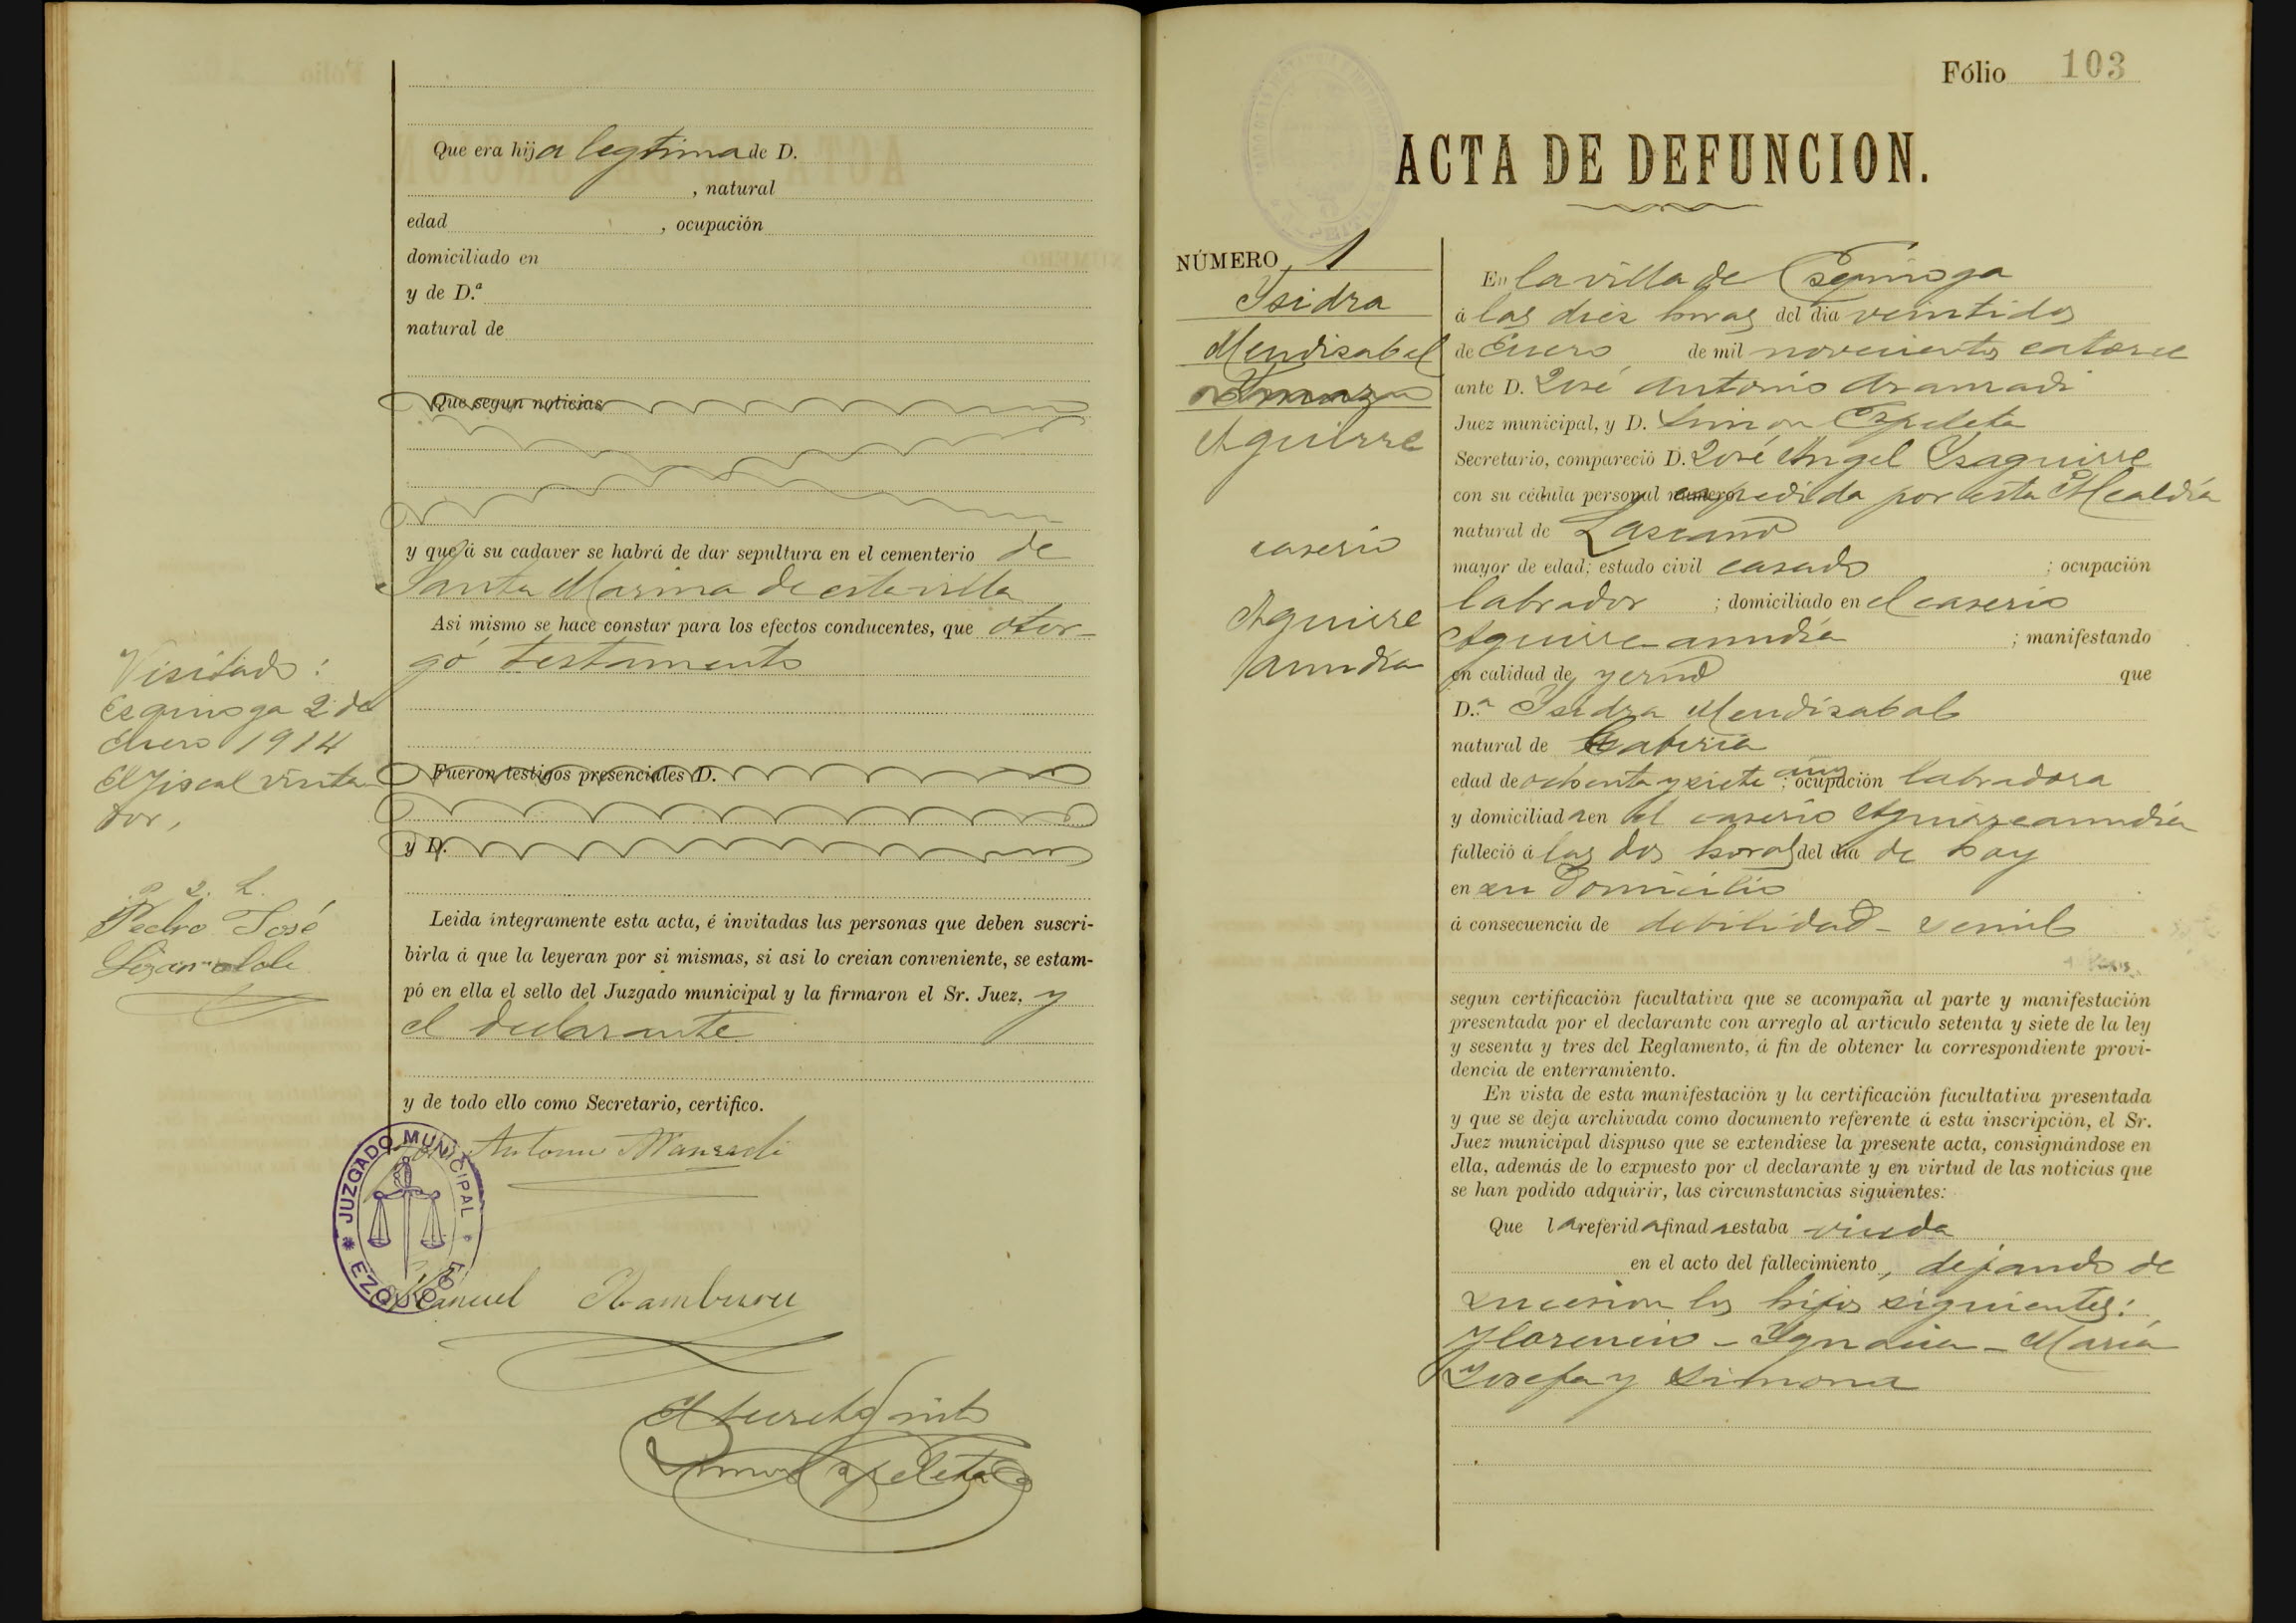 Que era hija legitima de D.
, natural
edad , ocupación
domiciliado en
y de D.ª
natural de
Que segun noticias
y que á su cadaver se habrá de dar sepultura en el cementerio de
Santa Marina de esta villa
Asi mismo se hace constar para los efectos conducentes, que otor-
gó testamento
Fueron testigos presenciales D.
y D.
Leida íntegramente esta acta, é invitadas las personas que deben suscri-
birla á que la leyeran por si mismas, si asi lo creian conveniente, se estam-
pó en ella el sello del Juzgado municipal y la firmaron el Sr. Juez, y
el declarante
y de todo ello como Secretario, certifico.
José Antonio Aramradi
JUZGADO MUNICIPAL
EZQUIOGA
Manuel
El Secretario
Simon Ezpeleta
Visitado:
Ezquioga 2 de
Enero 1914
El Fiscal visita
dor,
Pedro José
Fólio 103
ACTA DE DEFUNCION.
NÚMERO 1
Ysidra
Mendizabal
Aguirre
caserio
Aguirre
anndia
En la villa de Ezquioga
á las diez horas del dia veintidos
de Enero de mil novecientos catorce
ante D. José Antonio Aramradi
Juez municipal, y D. Simon Ezpeleta
Secretario, compareció D. José Angel Ysaguirre
con su cédula personal número expedida por esta Alcaldía
natural de Lascano
mayor de edad; estado civil casado ; ocupación
labrador ; domiciliado en el caserio
Aguirreanndia ; manifestando
en calidad de yerno que
D.ª Isidra Mendizabal
natural de Gabiria
edad de ochenta y siete años ; ocupación labradora
y domiciliada en el caserio Aguirreanndia
falleció á las dos horas del dia de hoy
en su domicilio
á consecuencia de debilidad senil
segun certificación facultativa que se acompaña al parte y manifestación
presentada por el declarante con arreglo al artículo setenta y siete de la ley
y sesenta y tres del Reglamento, á fin de obtener la correspondiente provi-
dencia de enterramiento.
En vista de esta manifestación y la certificación facultativa presentada
y que se deja archivada como documento referente á esta inscripción, el Sr.
Juez municipal dispuso que se extendiese la presente acta, consignándose en
ella, además de lo expuesto por el declarante y en virtud de las noticias que
se han podido adquirir, las circunstancias siguientes:
Que la referida finada estaba viuda
en el acto del fallecimiento, dejando de
sucesion los hijos siguientes:
Florencio - Ygnacia - María
Josefa y Simona